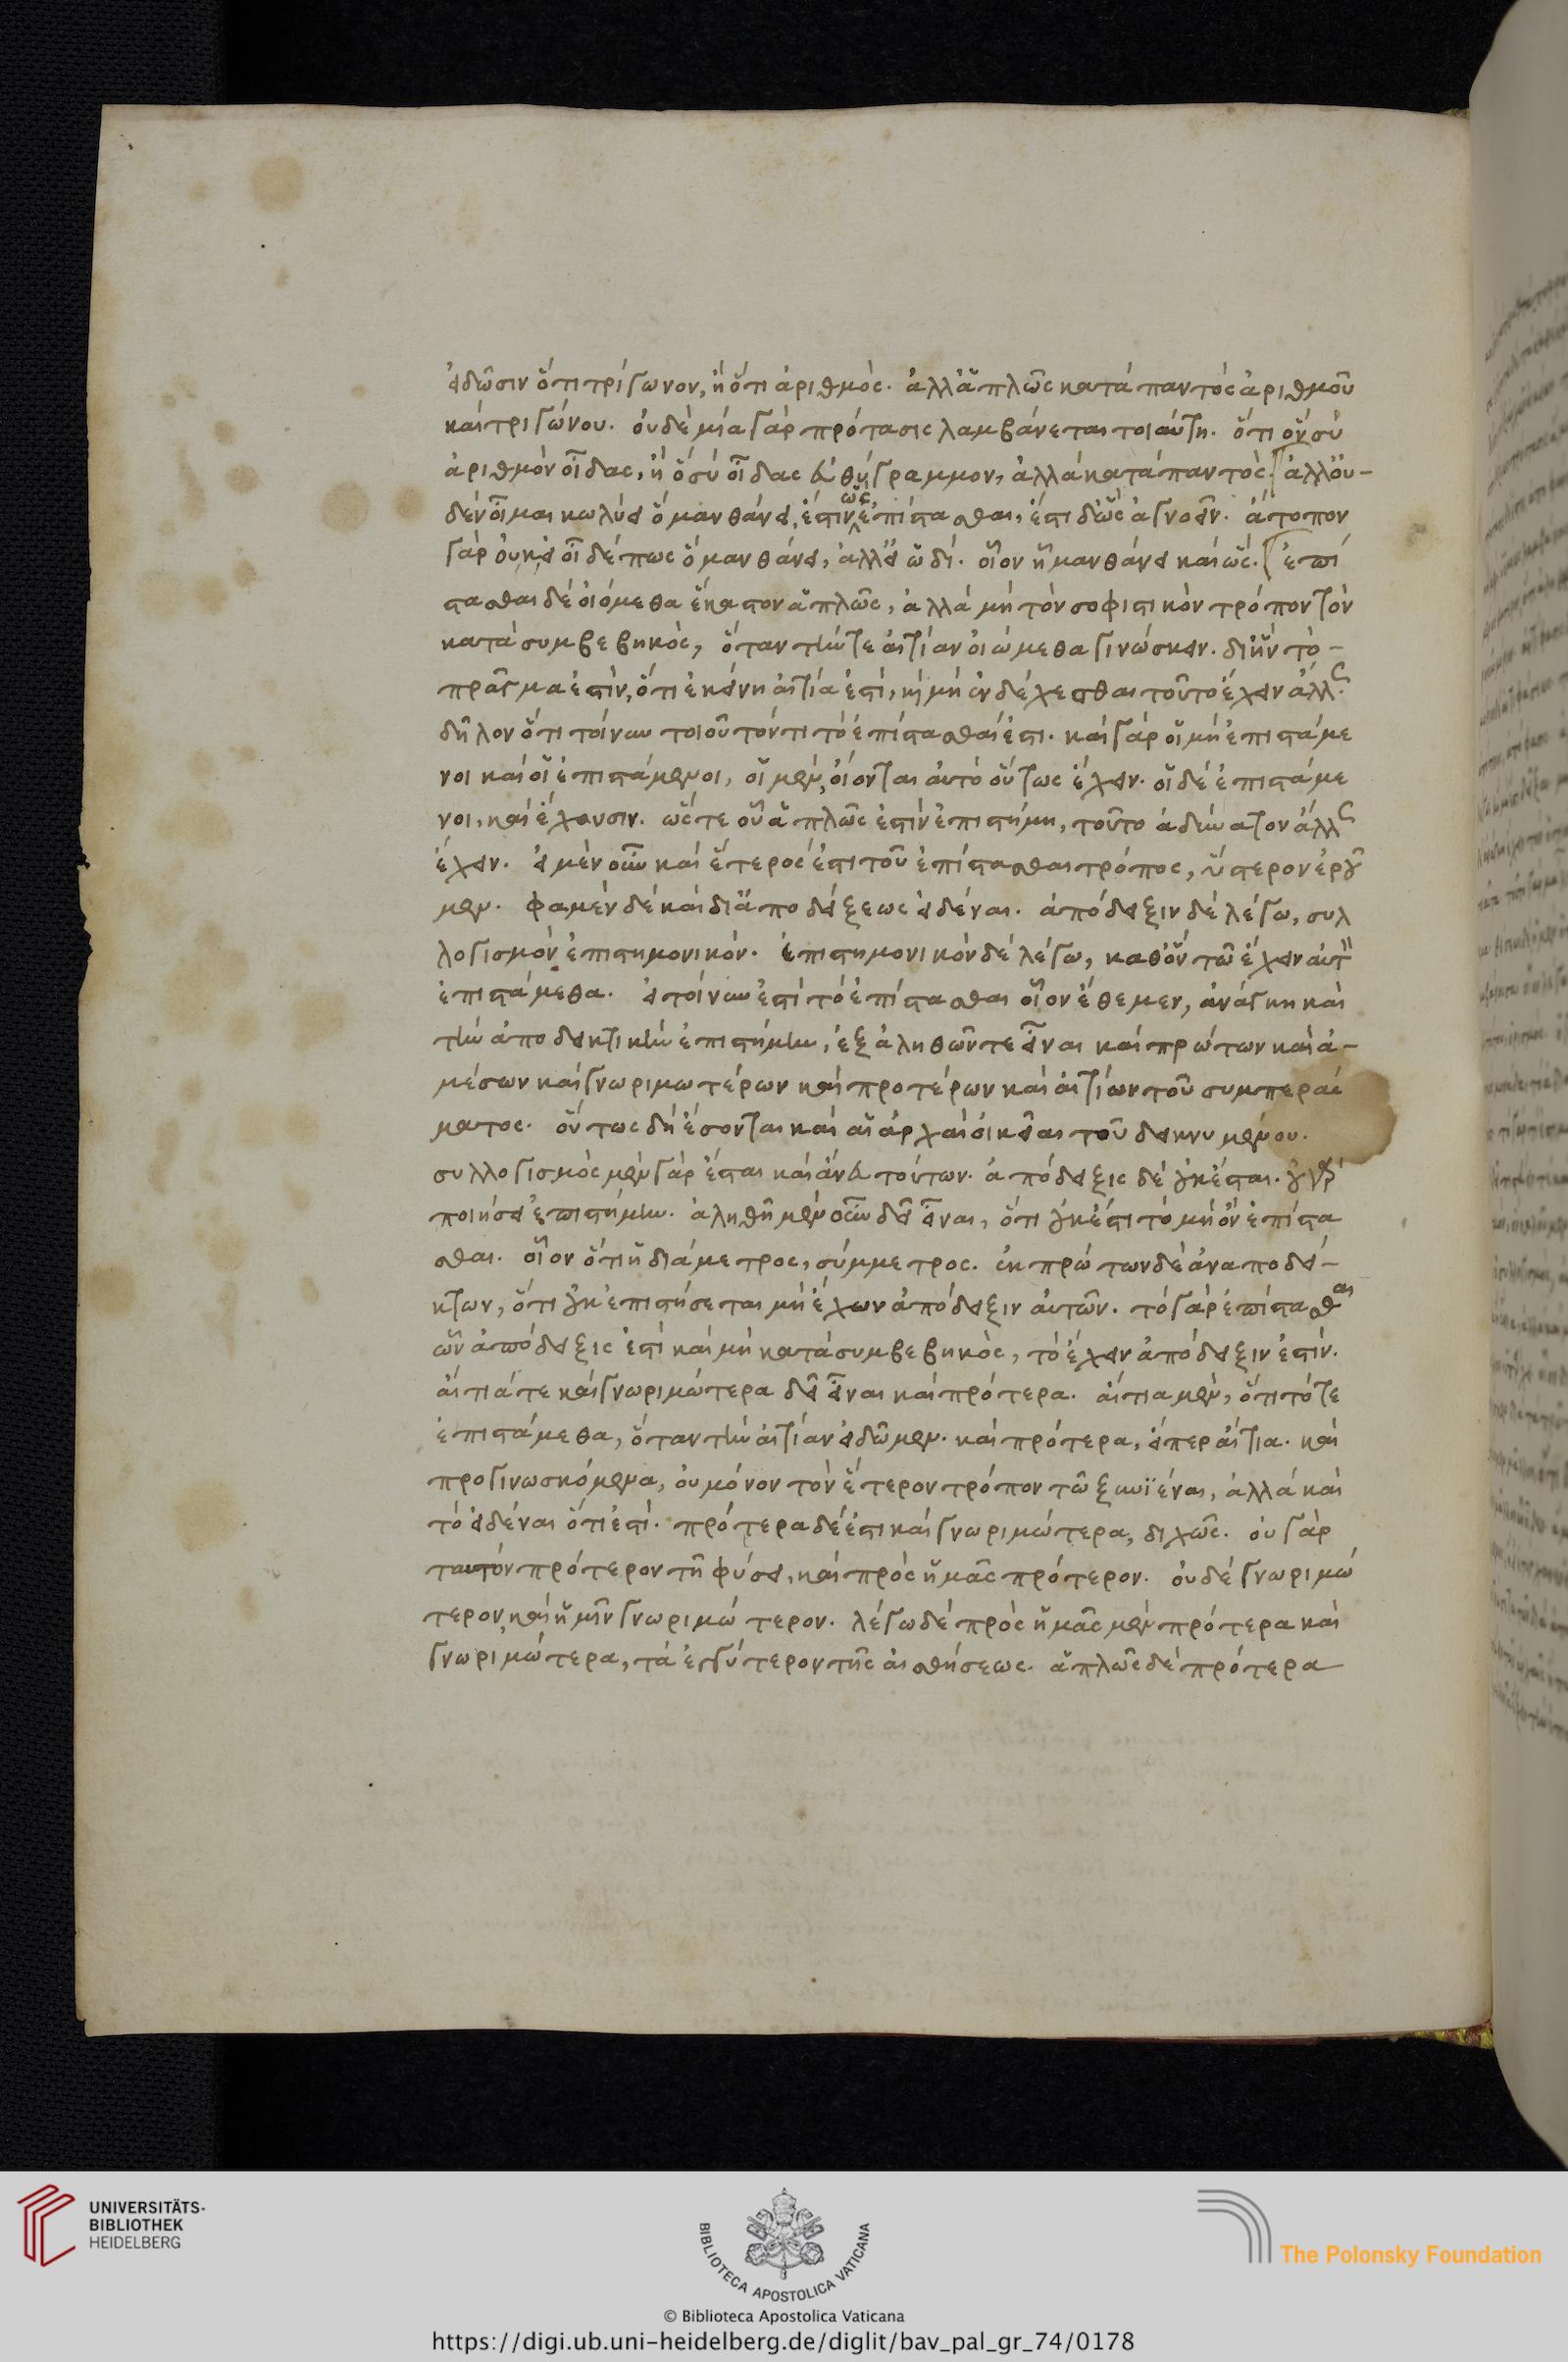 εἰδῶσιν ὅτι τρίγωνον, ἢ ὅτι ἀριθμὸς. ἀλλ' ἁπλῶς κατὰ παντὸς ἀριθμοῦ
καὶ τριγώνου. οὐδὲ μία γὰρ πρότασις λαμβάνεται τοιαύτη. ὅτι ὃν σὺ
ἀριθμὸν οἶδας, ἢ ὃ σὺ οἶδας εὐθύγραμμον, ἀλλὰ κατὰ παντὸς. [ἀλλ' οὐ-
δὲν οἶμαι κωλύει ὃ μανθάνει, ἔστιν ὡς ἐπίστασθαι, ἔστι δ' ὡς ἀγνοεῖν. ἄτοπον
γὰρ οὐκ εἰ οἶδέ πως ὃ μανθάνει, ἀλλ' εἰ ὡδί. οἷον ᾗ μανθάνει καὶ ὥς. [ἐπί
στασθαι δὲ οἰόμεθα ἕκαστον ἁπλῶς, ἀλλὰ μὴ τὸν σοφιστικὸν τρόπον τὸν
κατὰ συμβεβηκὸς, ὅταν τήν τε αἰτίαν οἰώμεθα γινώσκειν. δι' ἣν τὸ-
πρᾶγμα ἐστὶν, ὅτι ἐκείνη αἰτία ἐστί, καὶ μὴ ἐνδέχεσθαι τοῦτο ἔχειν ἄλλως.
δῆλον ὅτι τοίνυν τοιοῦτόν τι τὸ ἐπίστασθαί ἐστι. καὶ γὰρ οἱ μὴ ἐπιστάμε
νοι καὶ οἱ ἐπιστάμενοι, οἱ μὲν, οἴονται αὐτὸ οὕτως ἔχειν. οἱ δὲ ἐπιστάμε
νοι, καὶ ἔχουσιν. ὥστε οὗ ἁπλῶς ἐστὶν ἐπιστήμη, τοῦτο ἀδύνατον ἄλλως
ἔχειν. εἰ μὲν οὖν καὶ ἕτερος ἐστι τοῦ ἐπίστασθαι τρόπος, ὕστερον ἐροῦ
μεν. φαμὲν δὲ καὶ δι' ἀποδείξεως εἰδέναι. ἀπόδειξιν δὲ λέγω, συλ
λογισμὸν ἐπιστημονικόν. ἐπιστημονικὸν δὲ λέγω, καθ' ὃν τῶ ἔχειν αὐτὸν
ἐπιστάμεθα. εἰ τοίνυν ἐστὶ τὸ ἐπίστασθαι οἷον ἔθεμεν, ἀνάγκη καὶ
τὴν ἀποδεικτικὴν ἐπιστήμην, ἐξ ἀληθῶν τε εἶναι καὶ πρώτων καὶ ἀ-
μέσων καὶ γνωριμωτέρων καὶ προτέρων καὶ αἰτίων τοῦ συμπερά
ματος. οὕτως δὴ ἔσονται καὶ αἱ ἀρχαὶ οἰκεῖαι τοῦ δεικνυμένου.
συλλογισμὸς μὲν γὰρ ἔσται καὶ ἄνευ τούτων. ἀπόδειξις δὲ οὐκ ἔσται. οὐ γὰρ
ποιήσει ἐπιστήμην. ἀληθῆ μὲν οὖν δεῖ εἶναι, ὅτι οὐκ ἔστι τὸ μὴ ὂν ἐπίστα
σθαι. οἷον ὅτι ἡ διάμετρος, σύμμετρος. ἐκ πρώτων δὲ ἀναποδεί-
κτων, ὅτι οὐκ ἐπιστήσεται μὴ ἔχων ἀπόδειξιν αὐτῶν. τὸ γὰρ ἐπίστασθαι
ὧν ἀπόδειξις ἐστὶ καὶ μὴ κατὰ συμβεβηκὸς, τὸ ἔχειν ἀπόδειξιν ἐστίν.
αἴτιά τε καὶ γνωριμώτερα δεῖ εἶναι καὶ πρότερα. αἴτια μὲν, ὅτι τότε
ἐπιστάμεθα, ὅταν τὴν αἰτίαν εἰδῶμεν. καὶ πρότερα, εἴπερ αἴτια. καὶ
προγινωσκόμενα, οὐ μόνον τὸν ἕτερον τρόπον τῶ ξυνϊέναι, ἀλλὰ καὶ
τὸ εἰδέναι ὅτι ἐστί. πρότερα δέ ἐστι καὶ γνωριμώτερα, διχῶς. οὐ γὰρ
ταυτὸν πρότερον τῇ φύσει, καὶ πρὸς ἡμᾶς πρότερον. οὐδὲ γνωριμώ
τερον, καὶ ἡμῖν γνωριμώτερον. λέγω δὲ πρὸς ἡμᾶς μὲν πρότερα καὶ
γνωριμώτερα, τὰ ἐγγύτερον τῆς αἰσθήσεως. ἁπλῶς δὲ πρότερα
UNIVERSITÄTS-
BIBLIOTHEK
HEIDELBERG
BIBLIOTECA APOSTOLICA VATICANA
The Polonsky Foundation
© Biblioteca Apostolica Vaticana
https://digi.ub.uni-heidelberg.de/diglit/bav_pal_gr_74/0178